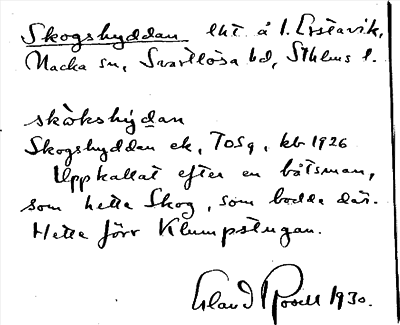 Skogshyddan lht å f. Erstavik,
Nacka sn, Svartlösa hd, Sthlms l.
skòkshýdan
Skogshyddan ek, TOSq, kb 1926
Uppkallat efter en båtsman,
som hette Skog, som bodde där.
Hette förr Klumpstugan.
Erland 1930.